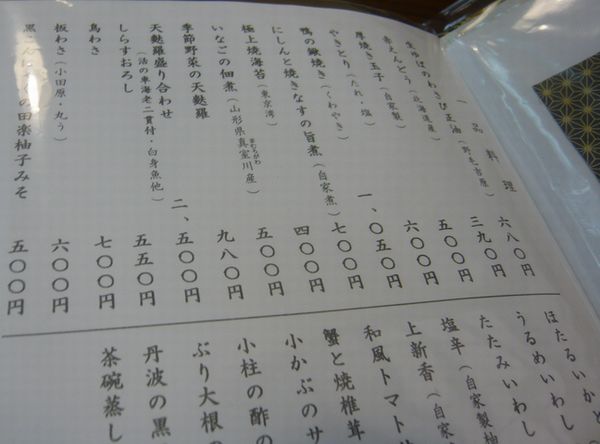 一品料理
生ゆばのわさび正油(野毛吉原) 六八〇円
赤えんどう(北海道産) 三九〇円
厚焼き玉子(自家製) 五〇〇円
やきとり(たれ・塩) 六〇〇円
鴨の鍬焼き(くわやき) 一、〇五〇円
にしんと焼きなすの旨煮(自家煮) 七〇〇円
極上焼海苔(東京湾) 四〇〇円
いなごの佃煮(山形県真室川産) まむろがわ 五〇〇円
季節野菜の天麩羅 九八〇円
天麩羅盛り合わせ(活の車海老二貫付・白身魚他) 二、五〇〇円
しらすおろし 五五〇円
鳥わさ 七〇〇円
板わさ(小田原・丸う) 六〇〇円
黒 の田楽柚子みそ 五〇〇円
ほたるいかと
うるめいわし
たたみいわし
塩辛(自家製
上新香(自家
和風トマト
蟹と焼椎茸
小かぶのサ
小柱の酢の
ぶり大根の
丹波の黒
茶碗蒸し